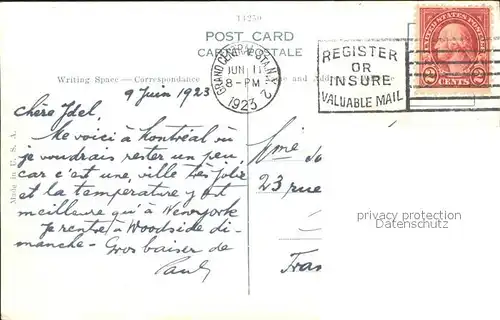 11239
POST CARD
CARTE POSTALE
Writing Space—Correspondance
Made in U. S. A.
GRAND CENTRAL STA. N.Y. 2
JUN 11
8-PM
1923
REGISTER
OR
INSURE
VALUABLE MAIL
UNITED STATES POSTAGE
2 CENTS 2
9 Juin 1923
Chère Idel.
Me voici à Montréal où
je voudrais rester un peu,
car c'est une, ville très jolie
et la température y est
meilleure qu'à Newyork
Je rentre à Woodside di-
manche - Gros baiser de
Paul
Mme
23 rue
Fran
privacy protection
Datenschutz